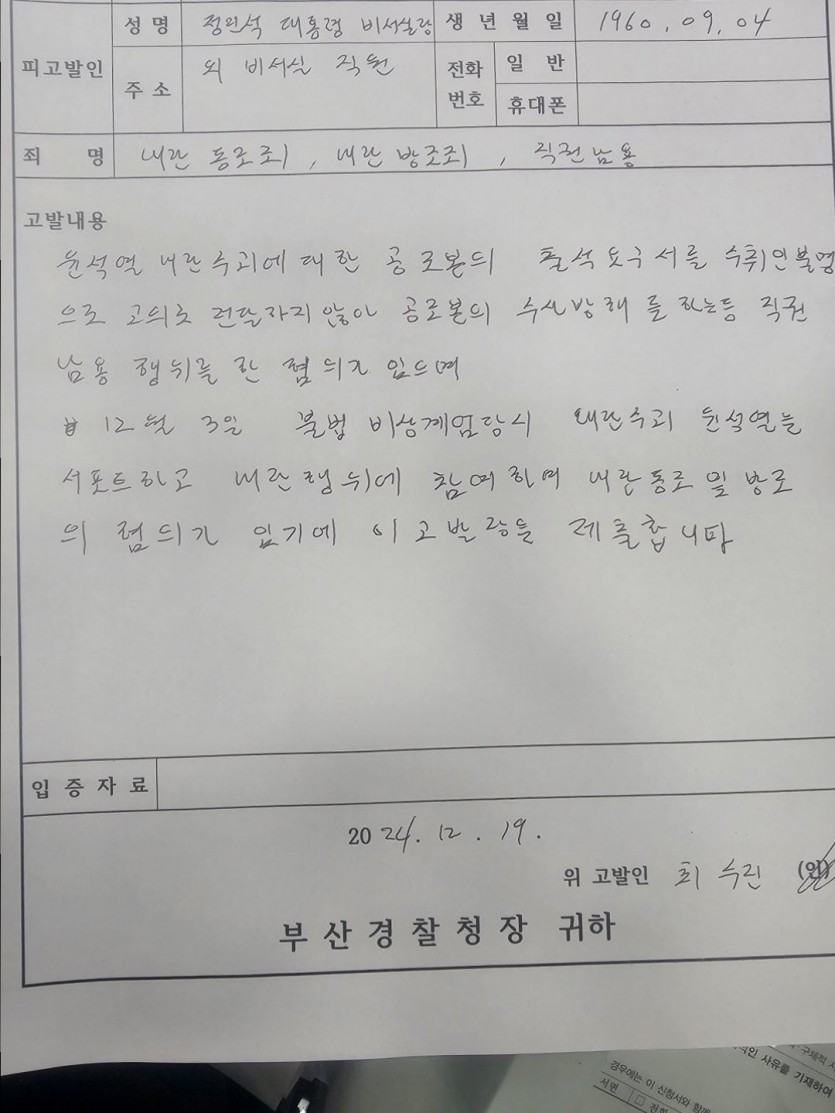 피고발인 성 명 정의석 대통령 비서실장 생 년 월 일 1960. 09. 04
주 소 외 비서실 직원 전화번호 일 반
휴대폰
죄 명 내란 동조죄, 내란 방조죄, 직권남용
고발내용
윤석열 내란수괴에 대한 공조본의 출석요구서를 수취인불명
으로 고의로 전달하지 않아 공조본의 수사방해를 하는등 직권
남용 행위를 한 혐의가 있으며
12월 3일 불법 비상계엄당시 내란수괴 윤석열을
서포트하고 내란행위에 참여하며 내란동조 및 방조
의 혐의가 있기에 이 고발장을 제출합니다
입 증 자 료
2024. 12. 19.
위 고발인 최수진 (인)
부 산 경 찰 청 장 귀하
구체적 사
적인 사유를 기재하여
경우에는 이 신청서와 함께
서면